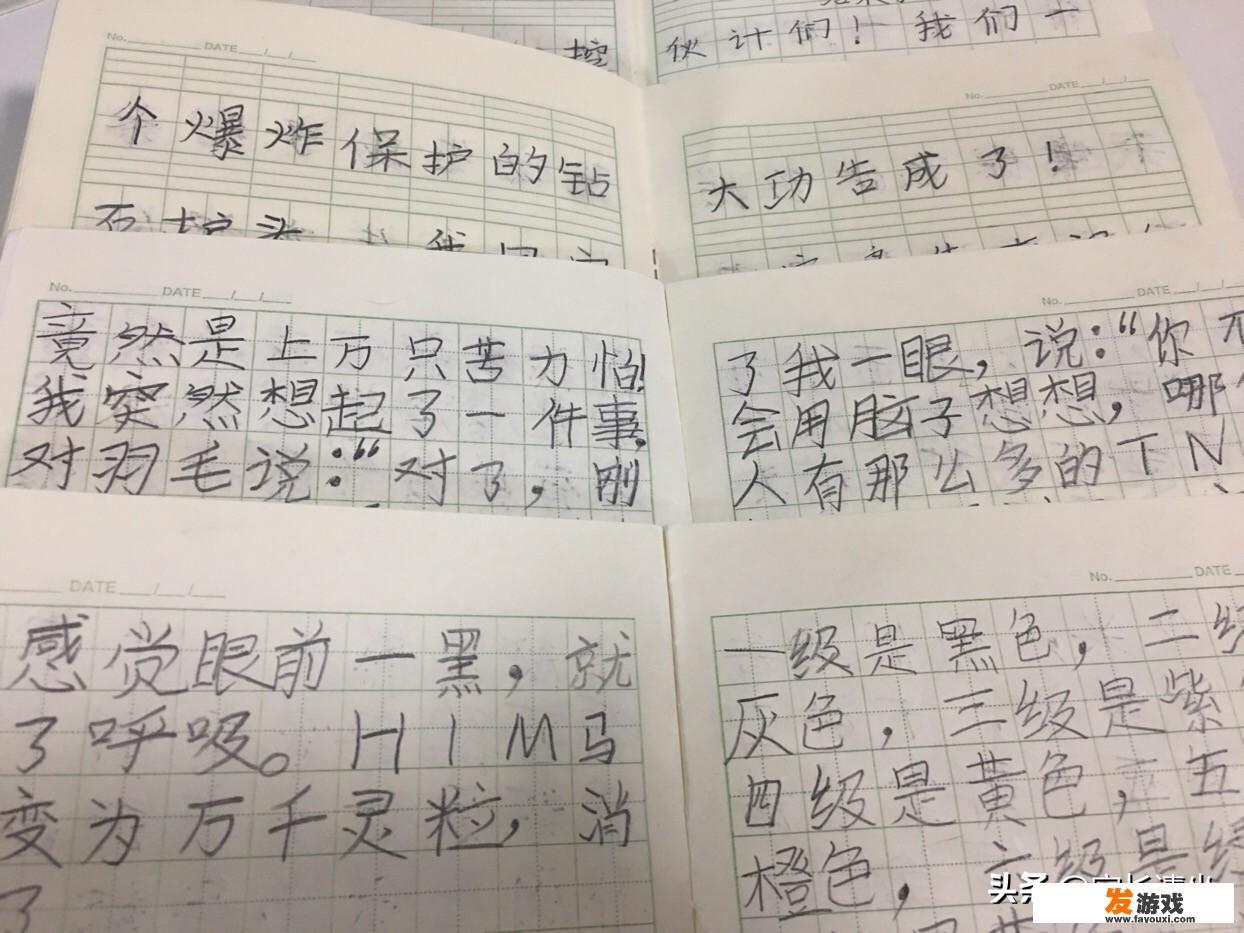 挖
伙计们！我们一
No. DATE / /
个爆炸保护的钻
No. DATE / /
大功告成了！
No. DATE / /
竟然是上万只苦力怕！
我突然想起了一件事，
对羽毛说：“对了，刚
No. DATE / /
了我一眼，说：“你
会用脑子想想，哪
人有那么多的TN
DATE / /
感觉眼前一黑，就
了呼吸。HIM马
变为万千灵粒，消
了
No. DATE
一级是黑色，二级
灰色，三级是紫
四级是黄色，五
橙色，六级是绿
头条
发游戏
www.fayouxi.com